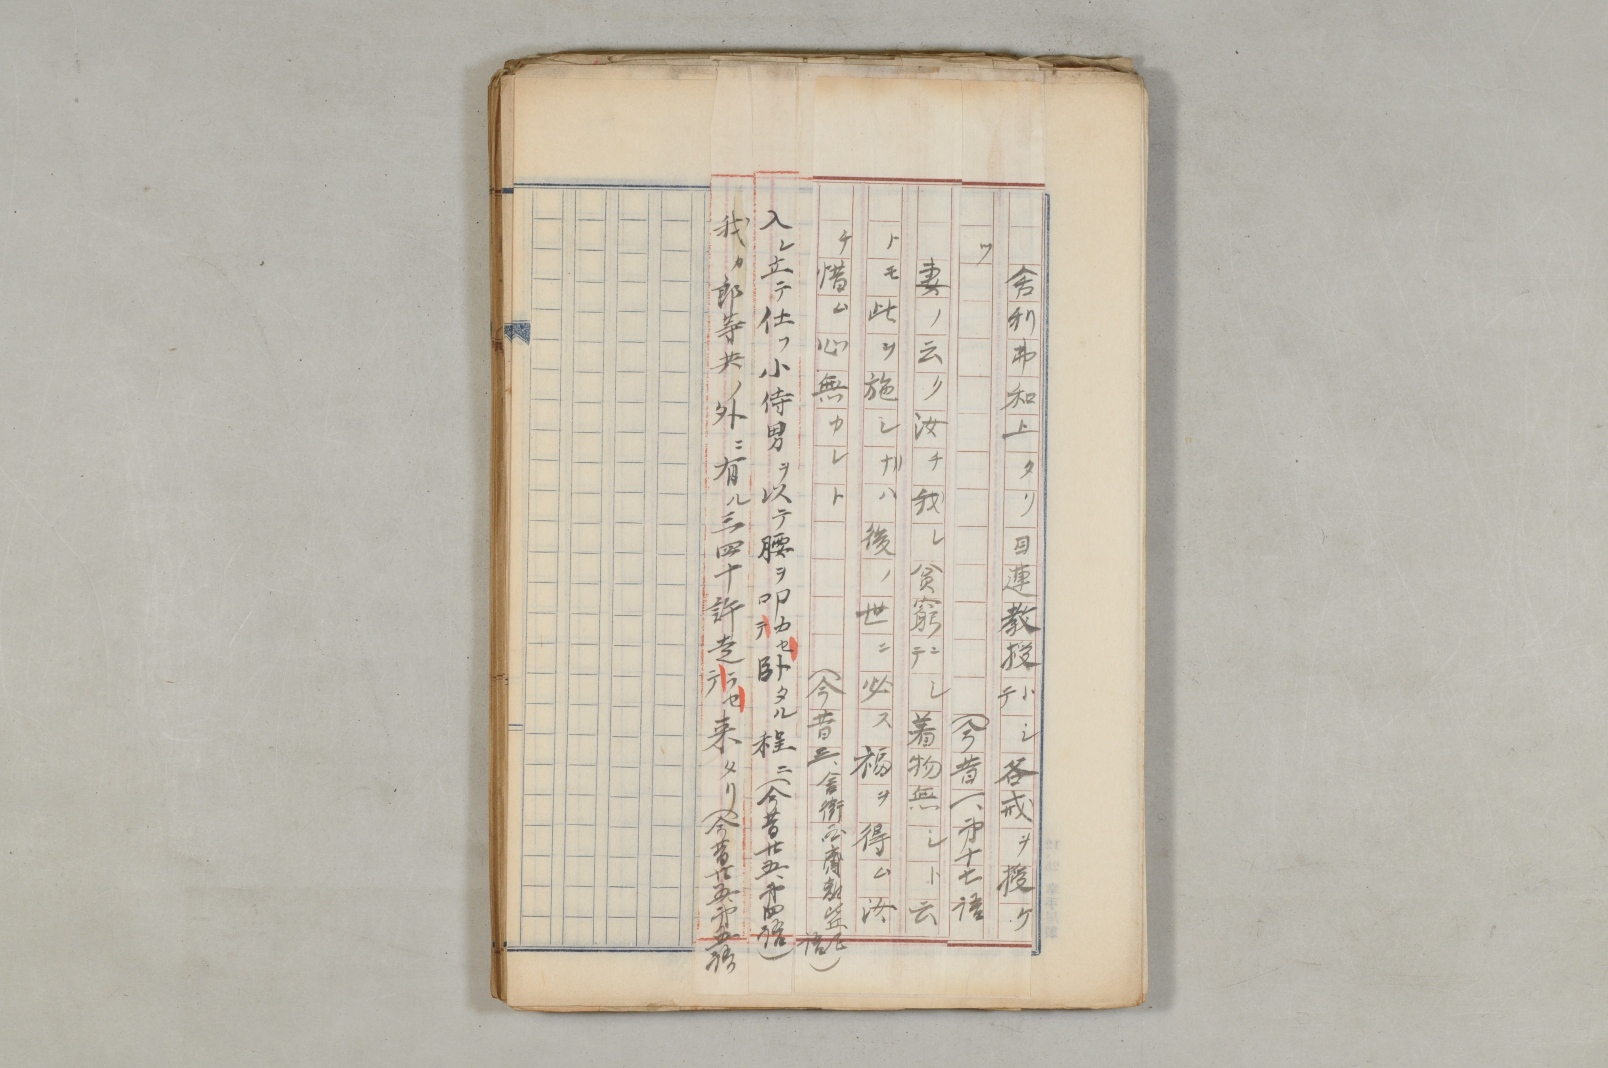 舎利弗和上タリ目連教授トシテ各戒ヲ授ケ
ツ　（今昔一、第十七語
妻ノ云ク汝チ我レ貧窮ニシテ着物無シト云
トモ此ヲ施シナバ後ノ世ニ必ス福ヲ得ム汝
チ惜ム心無カレト
（今昔三、舎衛国　　　　語）
入レ立テ仕フ小侍男ヲ以テ腰ヲ叩カセテ臥タル程ニ（今昔廿五、第四語）
我カ郎等共ノ外ニ有ル三四十許走ラセテ来タリ（今昔廿五、第五語